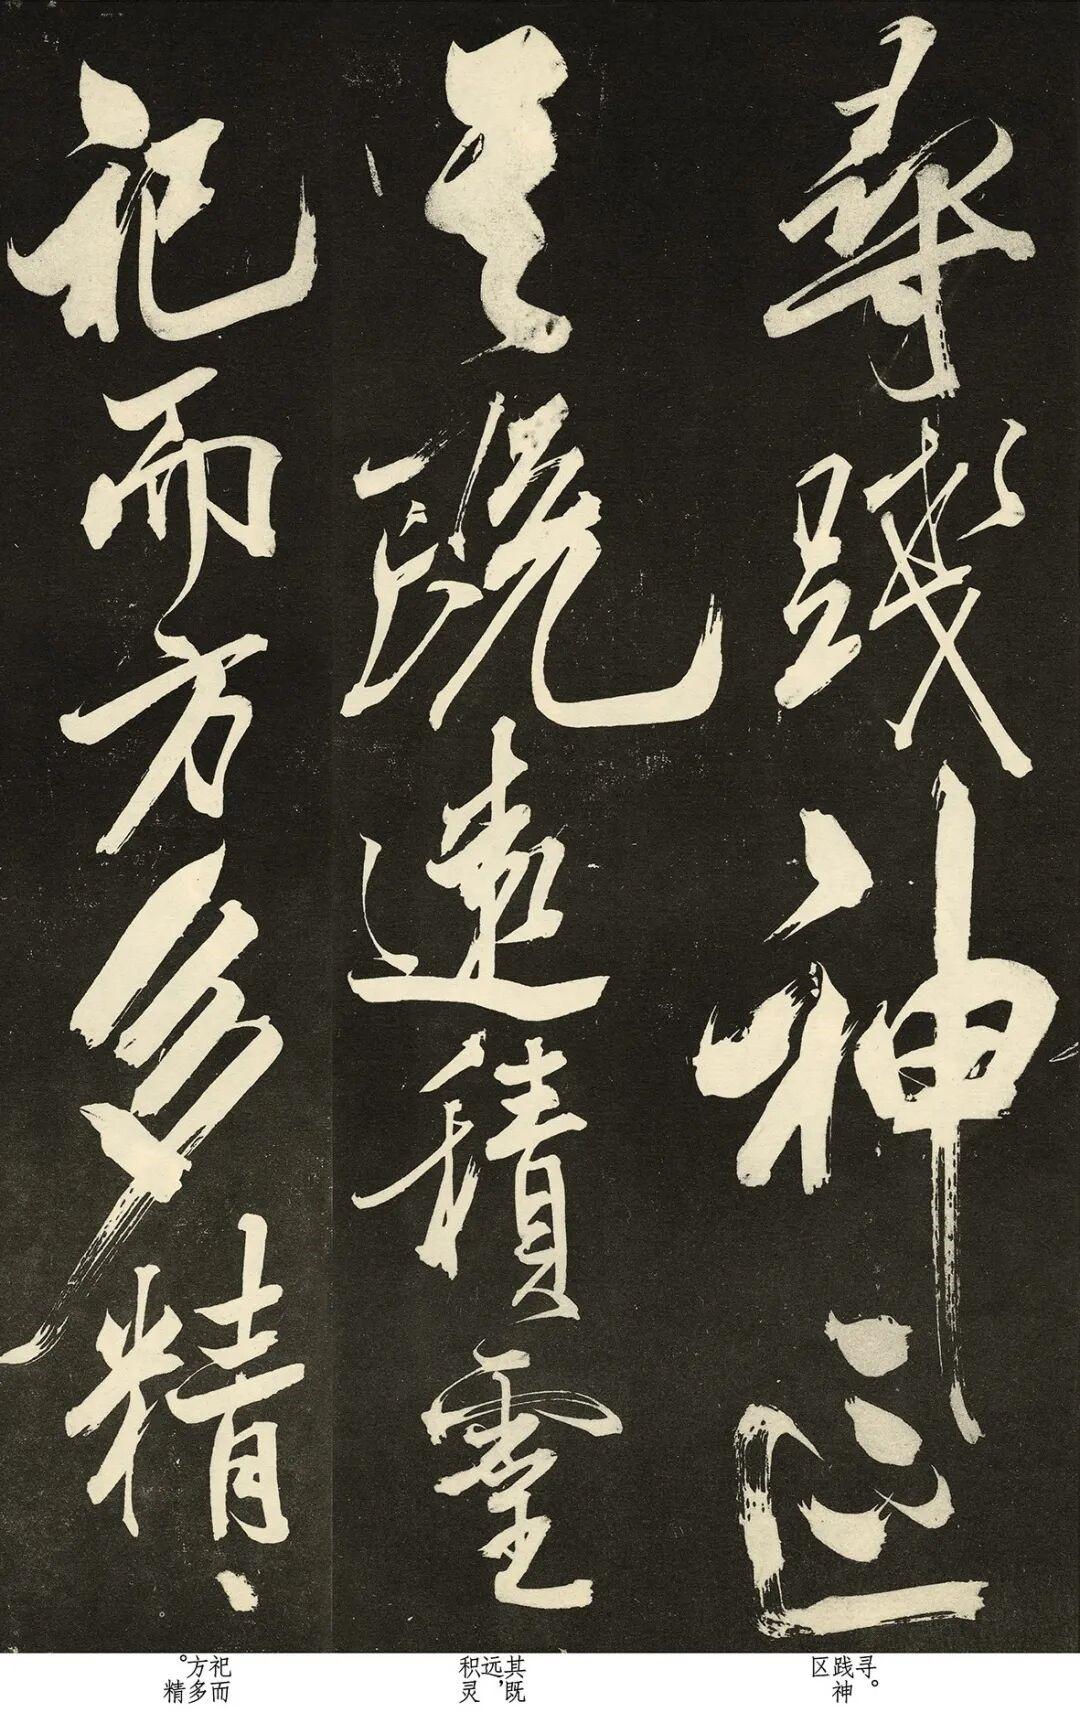 尋踐神区
其既遠積靈
祀而方多精
寻。
践神
区
其既
远，
积灵
祀而
方多
。精